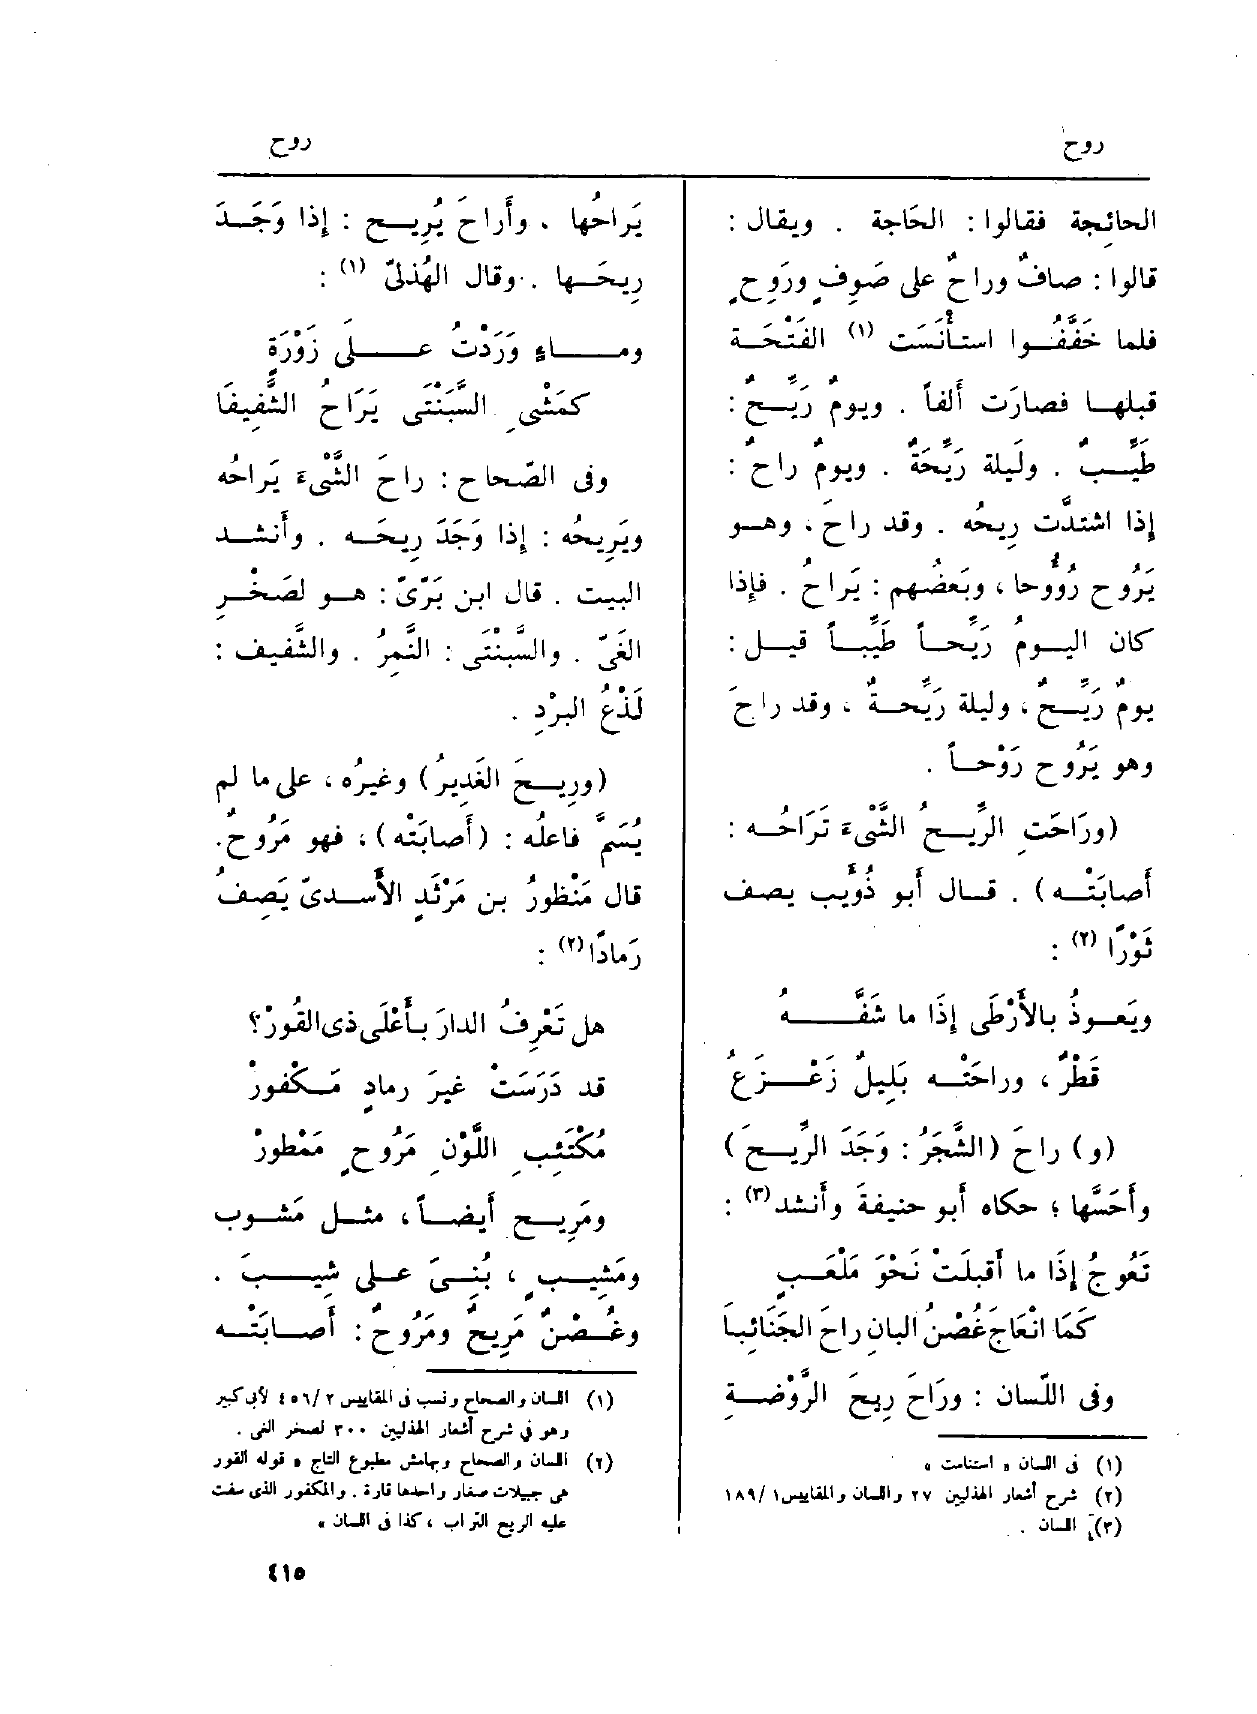 روح
روح
الحائِجة فقالوا : الحَاجة . ويقال :
قالوا : صافٌ وراحٌ على صَوِفٍ ورَوِحٍ
فلما خَفَّفُوا استأْنَسَت (١) الفَتْحَة
قبلها فصارَت أَلفاً . ويومٌ رَيِّحٌ :
طَيِّبٌ . وليلة رَيِّحَةٌ . ويومٌ راحٌ :
إذا اشتدَّت رِيحُه . وقد راحَ ، وهو
يَرُوح رُؤُوحا ، وبَعضُهم : يَراحُ . فإِذا
كان اليومُ رَيِّحاً طَيِّباً قيل :
يومٌ رَيِّحٌ ، وليلة رَيِّحةٌ ، وقد راحَ
وهو يَرُوح رَوْحاً .
(ورَاحَتِ الرِّيحُ الشَّىْءَ تَرَاحُه :
أَصابَتْه) . قال أَبو ذُؤَيب يصف
ثَوْرًا (٢) :
ويَعوذُ بالأَرْطَى إِذَا ما شَفَّهُ
قَطْرٌ ، وراحَتْه بَلِيلٌ زَعْزَعُ
(و) راحَ (الشَّجَرُ : وَجَدَ الرِّيحَ)
وأَحَسَّها ؛ حكاه أَبو حنيفةَ وأَنشد (٣) :
تَعُوجُ إِذَا ما أَقبلَتْ نَحْوَ مَلْعَبٍ
كَمَا انْعَاجَ غُصْنُ البانِ راحَ الجَنَائبَا
وفى اللّسان : ورَاحَ رِيحَ الرَّوْضةِ
(١) فى اللسان « استنامت »
(٢) شرح أشعار الهذليين ٢٧ واللسان والمقاييس ١ /١٨٩
(٣) اللسان .
يَراحُها . وأَراحَ يُرِيح : إِذا وَجَدَ
رِيحَها . وقال الهُذلىّ (١) :
وماءٍ وَرَدْتُ عَلَى زَوْرَةٍ
كمَشْىِ السَّبَنْتَى يَرَاحُ الشَّفِيفَا
وفى الصّحاح : راحَ الشَّىْءَ يَراحُه
ويَرِيحُه : إِذا وَجَدَ رِيحَه . وأَنشد
البيت . قال ابن بَرّىّ : هو لصَخْرِ
الغَىّ . والسَّبَنْتَى : النَّمِرُ . والشَّفيف :
لَذْعُ البرْدِ .
(ورِيحَ الغَدِيرُ) وغيرُه ، على ما لم
يُسَمَّ فاعلُه : (أَصابَتْه) ، فهو مَرُوحٌ.
قال مَنْظورُ بن مَرْثَدٍ الأَسدىّ يَصِفُ
رَمادًا (٢) :
هل تَعْرِفُ الدارَ بأَعْلَى ذى القُورْ؟
قد دَرَسَتْ غيرَ رمادٍ مَكْفورْ
مُكْتَئِبِ اللَّوْنِ مَرُوحٍ مَمْطورْ
ومَرِيح أَيضاً ، مثل مَشوب
ومَشِيبٍ ، بُنِىَ على شِيبَ .
وغُصْنٌ مَرِيحٌ ومَرُوحٌ : أَصابَتْه
(١) اللسان والصحاح ونسب فى المقاييس ٢ /٤٥٦ لأبى كبير
وهو فى شرح أشعار الهذليين ٣٠٠ لصخر الغى .
(٢) اللسان والصحاح وبهامش مطبوع التاج « قوله القور
هى جبيلات صغار واحدها قارة . والمكفور الذى سفت
عليه الريح التراب ، كذا فى اللسان »
٤١٥